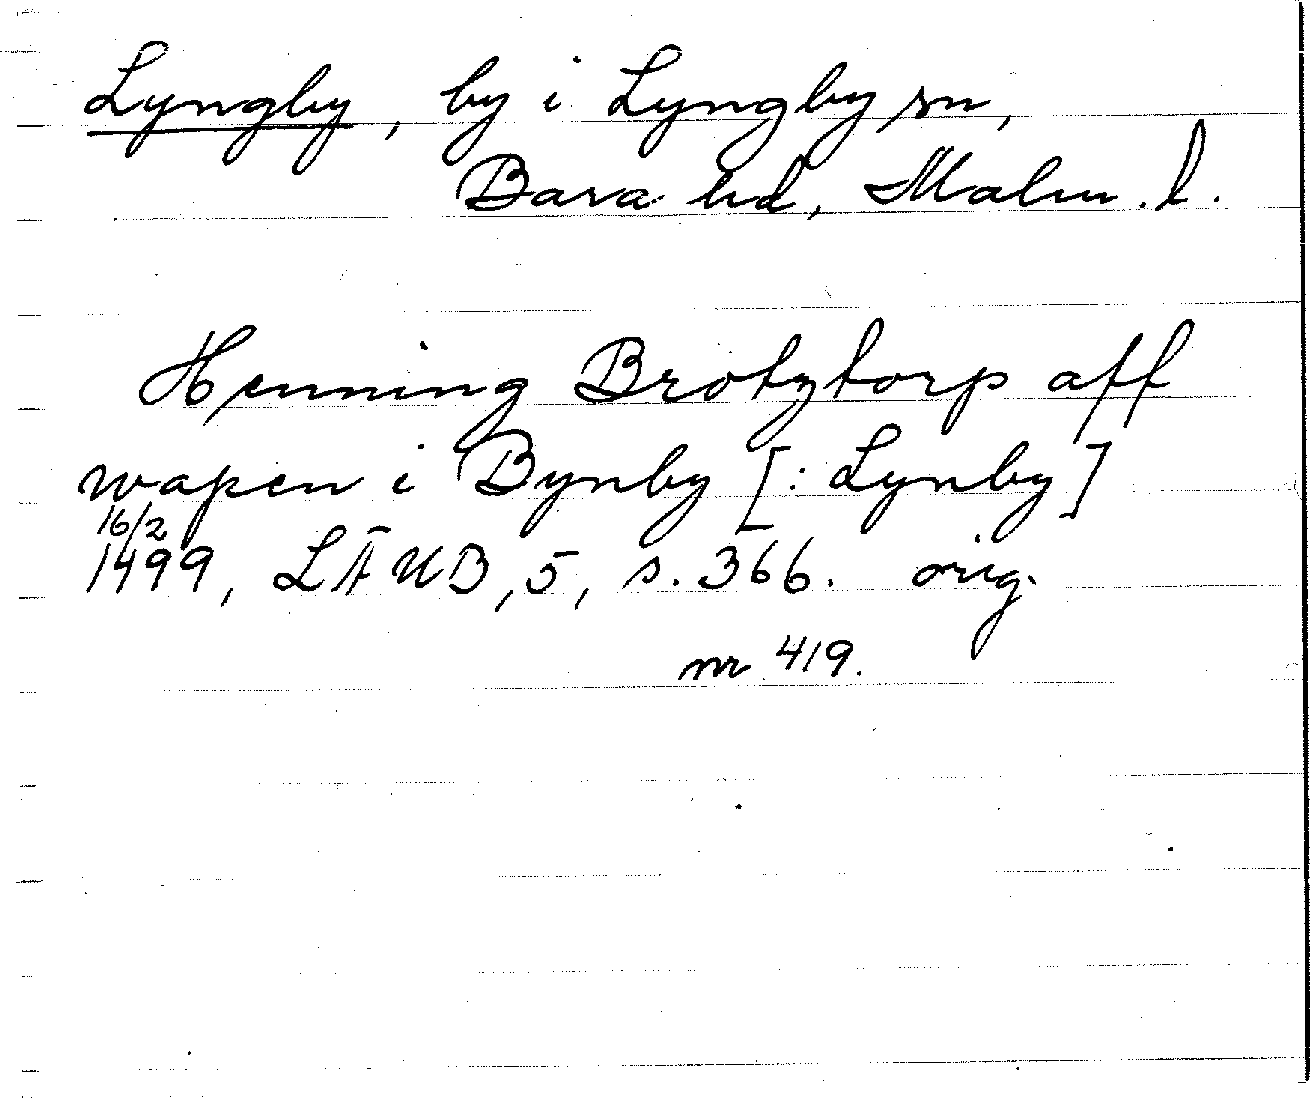 Lyngby, by i Lyngby sn,
Bara hd, Malm. l.
Henning Brotztorp aff
wapen i Bynby [: Lynby]
16/2
1499, LÄUB, 5, s. 366. orig.
nr 419.